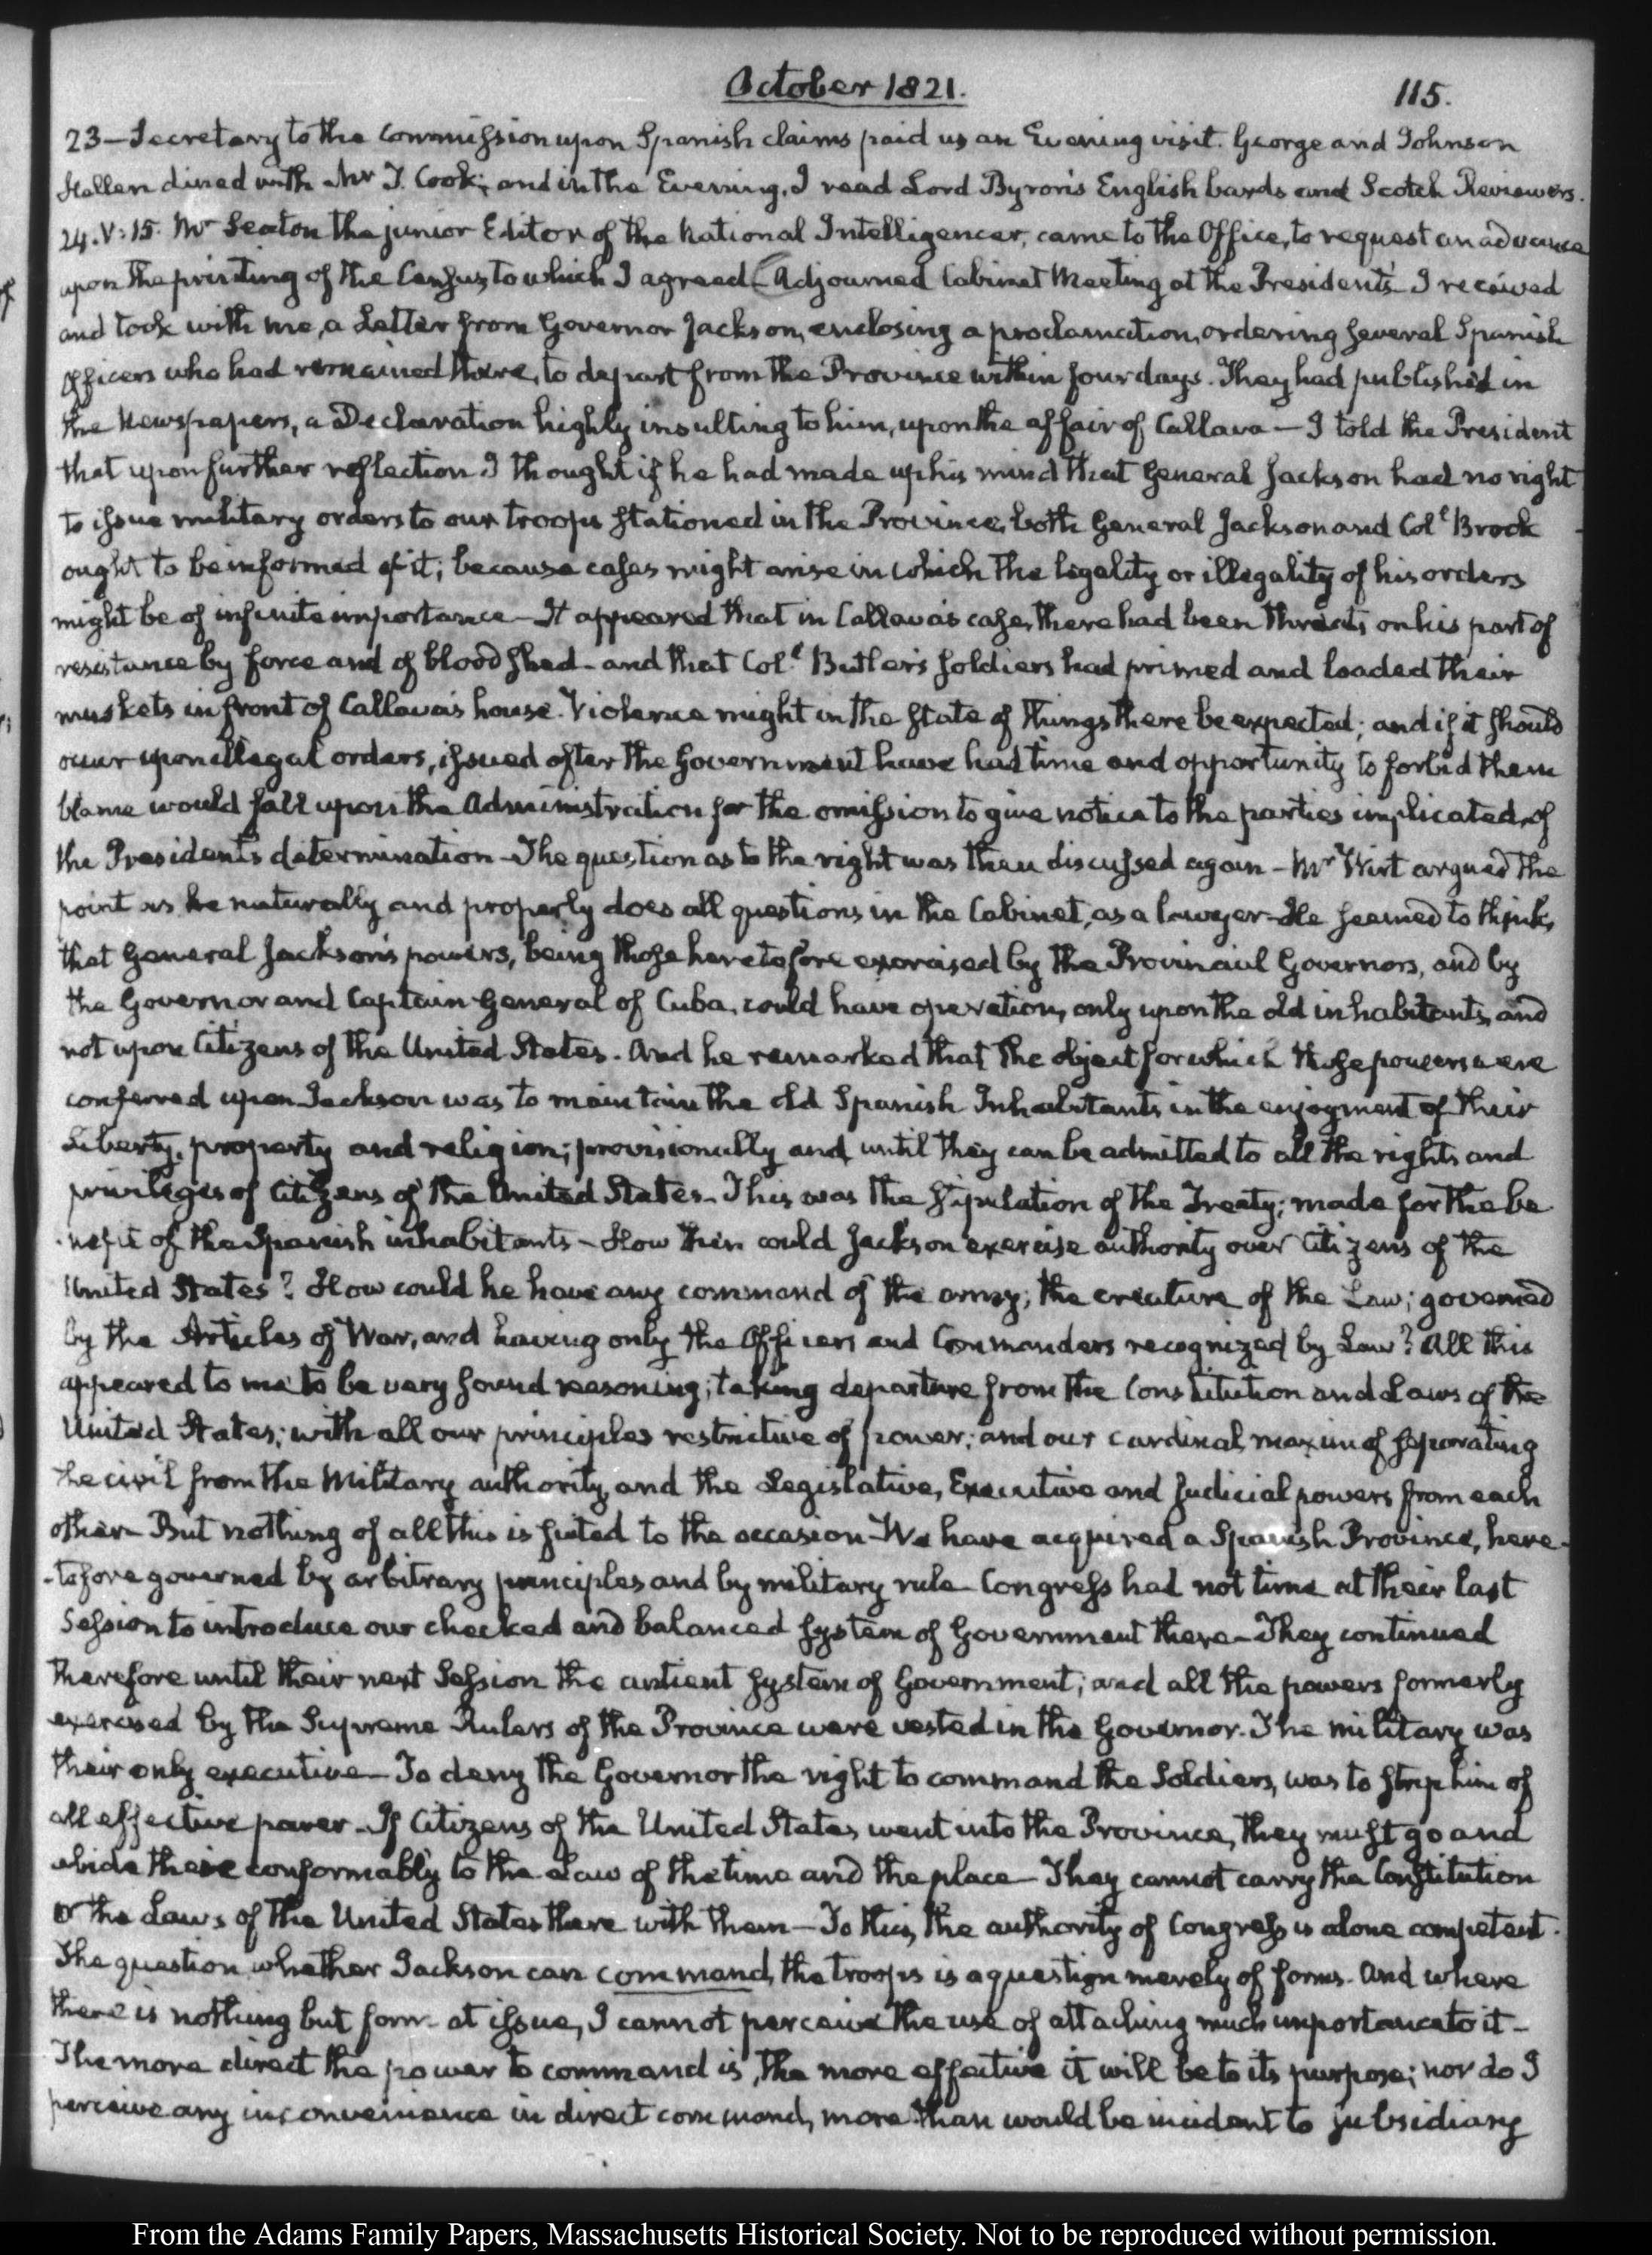 October 1821.
115.
23—Secretary to the Commission upon Spanish claims paid us an Evening visit. George and Johnson
Hellen dined with Mr. J. Cook; and in the Evening, I read Lord Byron's English bards and Scotch Reviewers.
24. V:15. Mr Seaton the junior Editor of the National Intelligencer, came to the Office, to request an advance
upon the printing of the Census, to which I agreed—Adjourned Cabinet Meeting at the President's—I received
and took with me, a Letter from Governor Jackson, enclosing a proclamation, ordering several Spanish
Officers who had remained there, to depart from the Province within four days. They had published in
the Newspapers, a Declaration highly insulting to him, upon the affair of Callava—I told the President
that upon further reflection I thought if he had made up his mind that General Jackson had no right
to issue military orders to our troops stationed in the Province, both General Jackson and Coll Brook
ought to be informed of it; because cases might arise in which the legality or illegality of his orders
might be of infinite importance—It appeared that in Callava's case, there had been threats on his part of
resistance by force and of blood shed—and that Coll Butler's soldiers had primed and loaded their
muskets in front of Callava's house. Violence might in the state of things there be expected; and if it should
occur upon illegal orders, issued after the Government have had time and opportunity to forbid them
blame would fall upon the Administration for the omission to give notice to the parties implicated, of
the President's determination—The question as to the right was then discussed again—Mr Wirt argued the
point as he naturally and properly does all questions in the Cabinet, as a lawyer—He seemed to think,
that General Jackson's powers, being those heretofore exercised by the Provincial Governors, and by
the Governor and Captain General of Cuba, could have operation, only upon the old inhabitants, and
not upon Citizens of the United States. And he remarked that the object for which those powers were
conferred upon Jackson was to maintain the old Spanish Inhabitants in the enjoyment of their
Liberty, property and religion; provisionally and until they can be admitted to all the rights and
privileges of Citizens of the United States—This was the stipulation of the Treaty; made for the be
-nefit of the Spanish inhabitants—How then could Jackson exercise authority over Citizens of the
United States? How could he have any command of the army; the creature of the Law; governed
by the Articles of War, and having only the Officers and Commanders recognized by Law? All this
appeared to me to be very sound reasoning; taking departure from the Constitution and Laws of the
United States; with all our principles restrictive of power; and our cardinal maxim of separating
the civil from the Military authority, and the Legislative, Executive and Judicial powers from each
other—But nothing of all this is suited to the occasion—We have acquired a Spanish Province, here-
-tofore governed by arbitrary principles and by military rule—Congress had not time at their last
Session to introduce our checked and balanced system of Government there—They continued
therefore until their next Session the antient system of Government; and all the powers formerly
exercised by the Supreme Rulers of the Province were vested in the Governor. The military was
their only executive—To deny the Governor the right to command the Soldiers, was to strip him of
all effective power—If Citizens of the United States went into the Province, they must go and
abide there conformably to the Law of the time and the place—They cannot carry the Constitution
or the Laws of the United States there with them—To this, the authority of Congress is alone competent.
The question whether Jackson can command, the troops is a question merely of forms. And where
there is nothing but form at issue, I cannot perceive the use of attaching much importance to it—
The more direct the power to command is, the more effective it will be to its purpose; nor do I
perceive any inconvenience in direct command, more than would be incident to subsidiary
From the Adams Family Papers, Massachusetts Historical Society. Not to be reproduced without permission.